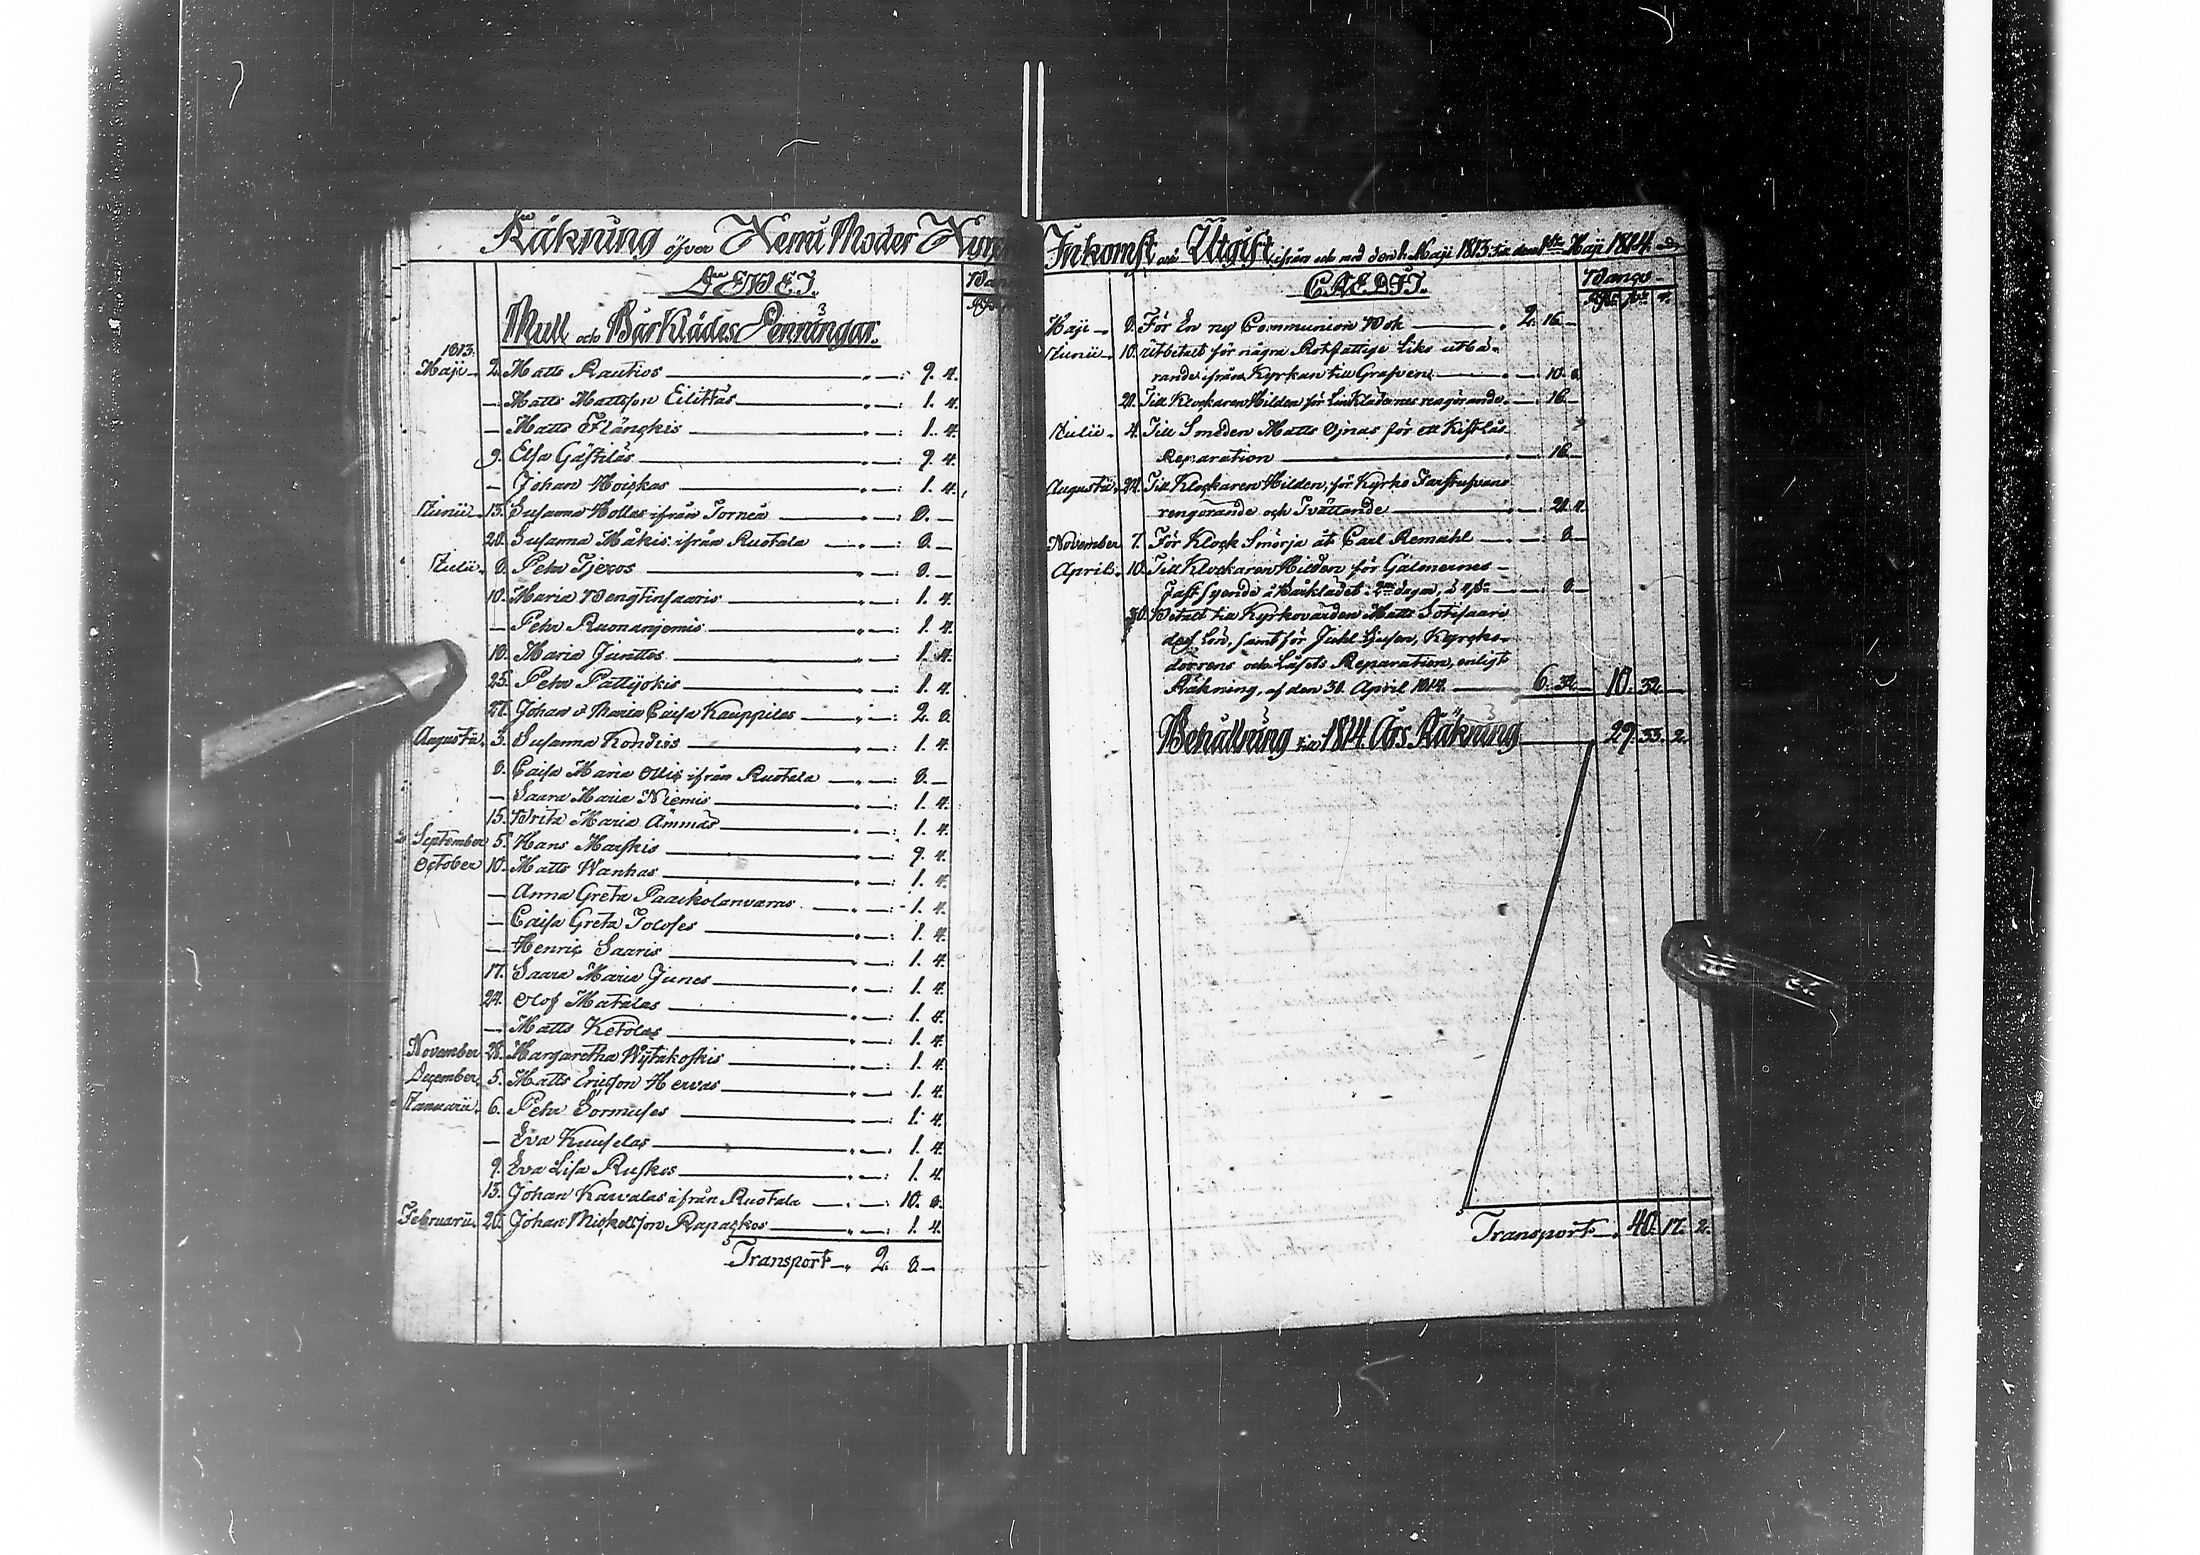 Räkning öfver Kemi Moder Kyrk
DEBET.
Mull och Bårklädes Penningar.
1813.
Maji 2. Matts Rautios 9. 4.
— Matts Mattsson Eilittas 1. 4.
— Matts Flänckis 1. 4.
9. Elsa Gästiläs 9. 4.
— Johan Hoickas 1. 4.
Junii 13. Susanna Hollas ifrån Torneå 8. —
20. Susanna Mäkis ifrån Ruotala 8. —
Julii 8. Pehr 8. —
10. Maria Bengtinsaaris 1. 4.
— Pehr Ruonanjomis 1. 4.
18. Maria Junttos 1. 4.
25. Pehr Pattijokis 1. 4.
27. Johan o Maria Caisa Kauppilas 2. 8.
Augusti 3. Susanna Kondiös 1. 4.
8. Caisa Maria Ollis ifrån Ruotala 8. —
— Saara Maria Niemis 1. 4.
15. Brita Maria Ämmäs 1. 4.
September 5. Hans Marskis 9. 4.
October 10. Matts Wanhas 1. 4.
— Anna Greta Paackolanvaras 1. 4.
— Caisa Greta 1. 4.
— Henric Saaris 1. 4.
17. Saara Maria Junes 1. 4.
24. Olof Matalas 1. 4.
— Matts Ketolas 1. 4.
November 28. Margaretha Wijtakoskis 1. 4.
December 5. Matts Ericson Hervas 1. 4.
Januarii 6. Pehr Sormuses 1. 4.
— Eva Kuuselas 1. 4.
9. Eva Lisa Ruskos 1. 4.
13. Johan Kawalas ifrån Ruotala 10. 8.
Februarii 20. Johan Mickelsson Rapackos 1. 4.
Transport 2. 8. —
Inkomst och Utgift ifrån och med den 1 Maji 1813 till den 1ste Maji 1814.
CREDIT.
Banco
Maji 8. För En ny Communion Bok 2. 16. —
Junii 10. Utbetalt för några Rotfattige Liks utbä-
rande ifrån Kyrkan till Grafven 10. 8.
20. Till Klockaren Hilden för Linklädernes rengörande 16. —
Julii 4. Till Smeden Matts Ojnas för ett Kistlås
Reparation 16. —
Augusti 24. Till Klockaren Hilden, för Kyrko
rengörande och Tvättande 21. 4.
November 7. För Klock Smörja åt Carl Remahl 8. —
April 10. Till Klockaren Hilden för Galmernes
Fastsyende å Bårklädet 8. —
30. Betalt till Kyrkovärden Matts Sotisaari
dess Lön, samt för Julel Ljusen, Kyrcko-
dörrens och Låsets Reparation, enligt
Räkning, af den 30. April 1814. 6. 32. 10. 32. —
Behållning till 1814 Års Räkning 29. 33. 2.
Transport 40. 17. 2.